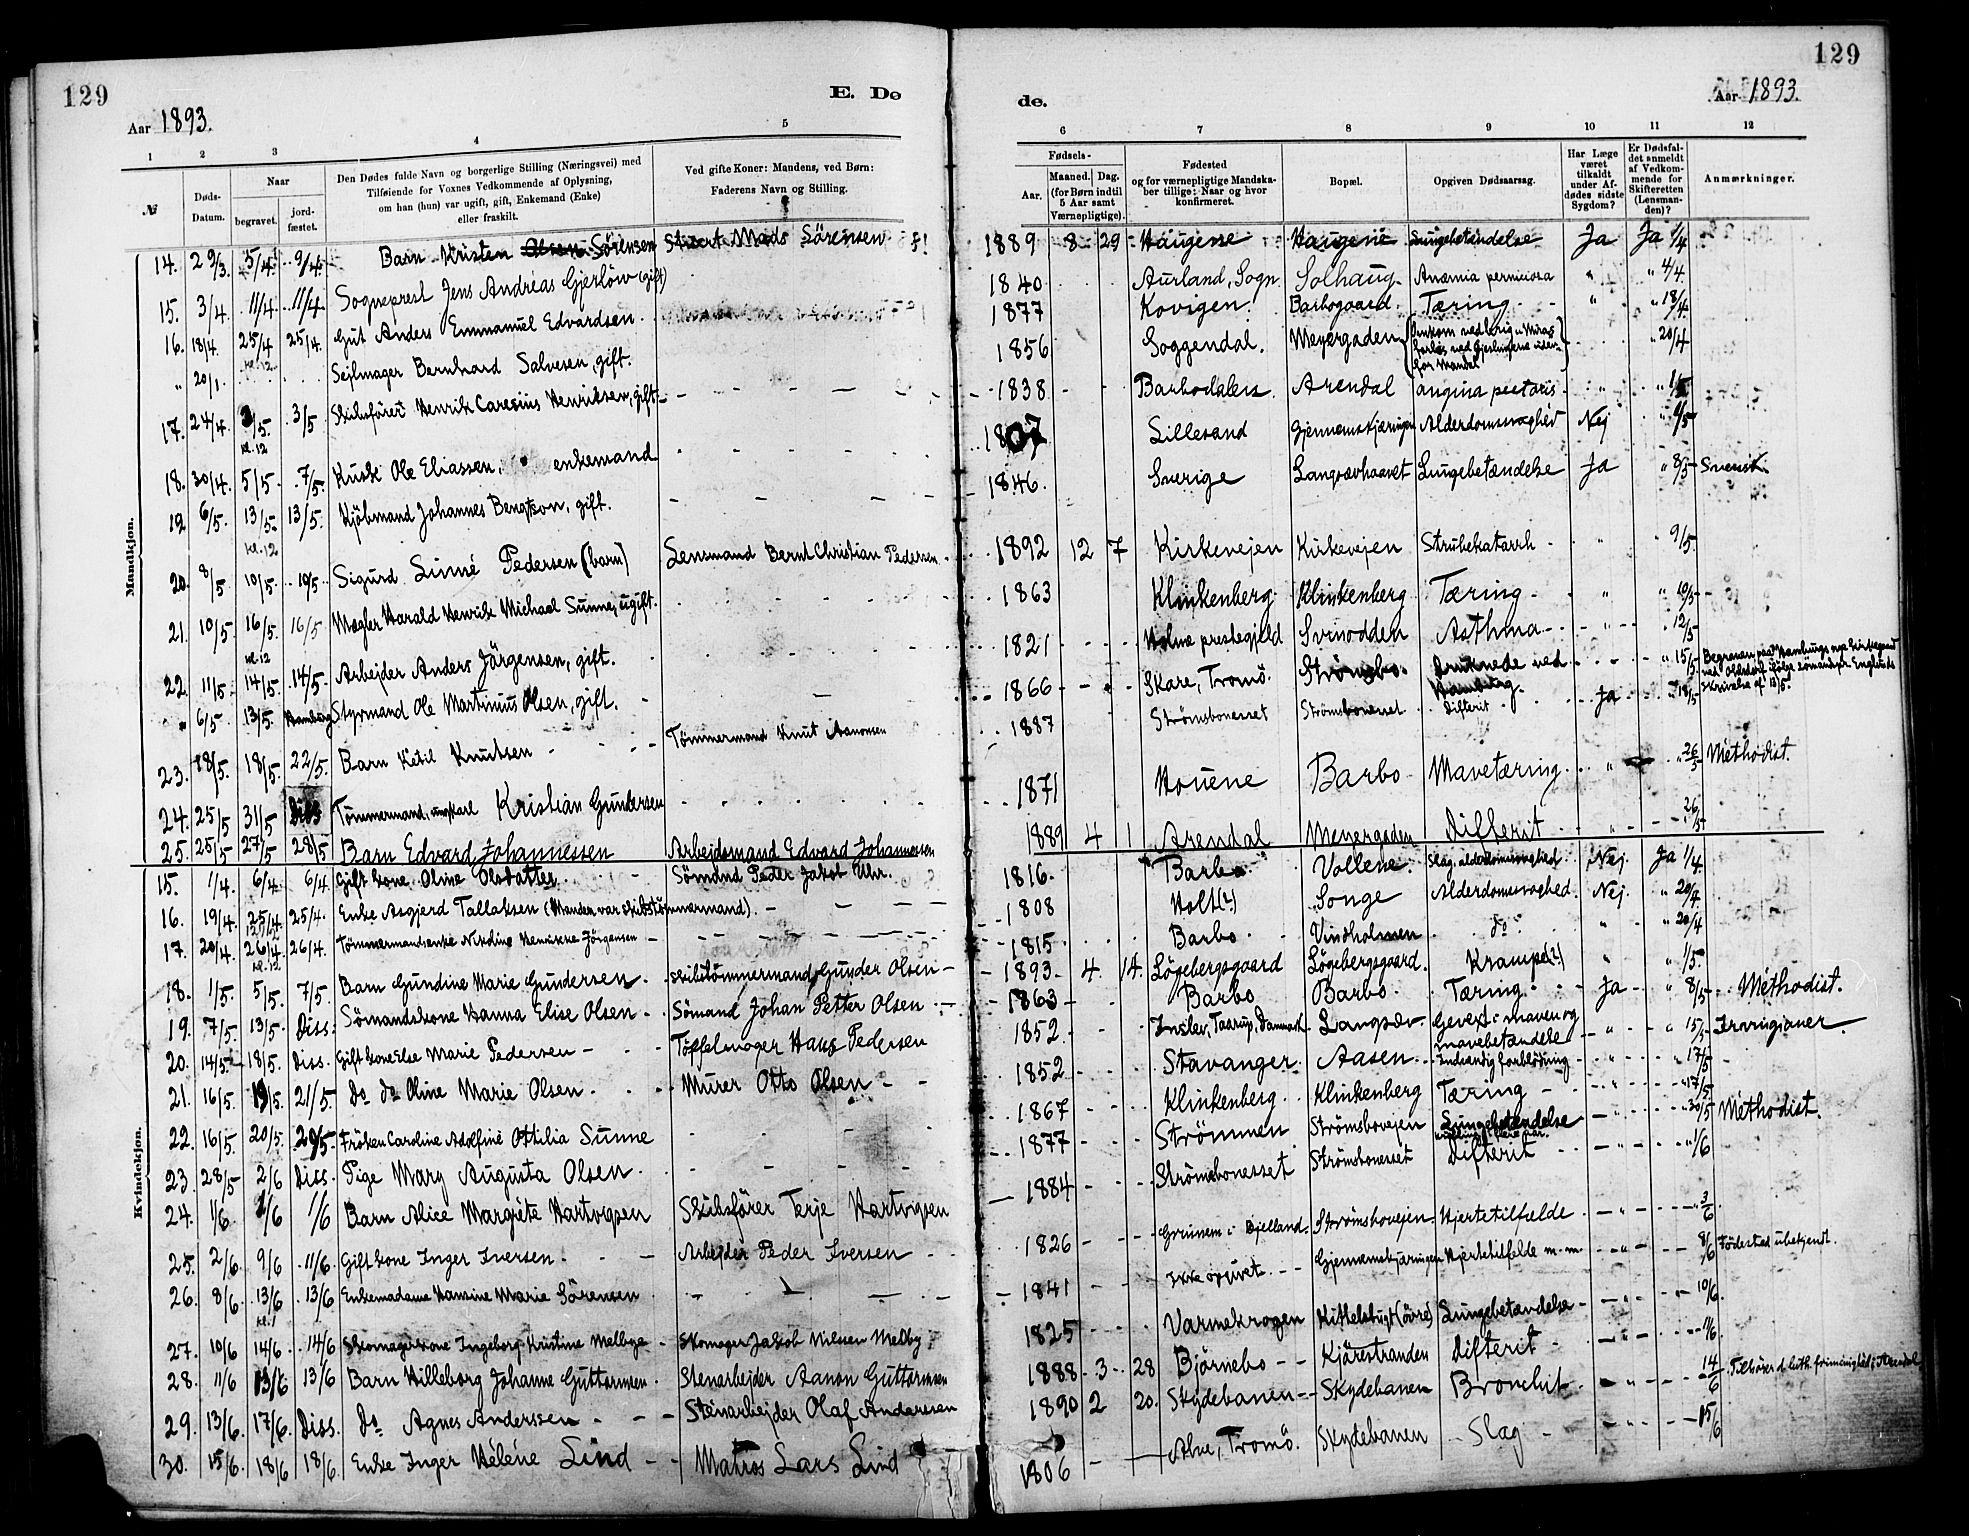 129
E. Dø
Aar 1893.
1 2 3 4 5
№
Døds-Datum.
Naar
begravet.
jord-fæstet.
Den Dødes fulde Navn og borgerlige Stilling (Næringsvei) med
Tilføiende for Voxnes Vedkommende af Oplysning,
om han (hun) var ugift, gift, Enkemand (Enke)
eller fraskilt.
Ved gifte Koner: Mandens, ved Børn:
Faderens Navn og Stilling.
Mandkjøn.
14. 29/3. 5/4 9/4 Barn Kristen Olsen Sörensen Mads Sörensen
15. 3/4 11/4 11/4 Sogneprest Jens Andreas Gjerlöw (gift)
16. 18/4. 25/4 25/4. Gut Anders Emmanuel Edvardsen
" 20/1. Sejlmager Bernhard Salvesen, gift.
17. 24/4 3/5. 3/5 Skibsförer Henrik Caresius Henriksen, gift.
kl. 12
18. 30/4. 5/5 7/5. Kusk Ole Eliassen, enkemand
19 6/5. 13/5. 13/5. Kjöbmand Johannes Bengtson, gift.
kl. 12
20. 8/5 10/5. 10/5. Sigurd Linné Pedersen (barn) Lensmand Bernt Christian Pedersen
21. 10/5. 16/5. 16/5 Mægler Harald Henrik Michael Sunne, ugift.
kl. 12
22. 11/5. 14/5. 14/5. Arbejder Anders Jörgensen, gift.
" 6/5. 13/5. Hamborg Styrmand Ole Martinius Olsen, gift.
23. 18/5. 18/5. 22/5. Barn Ketil Knutsen Tömmermand Knut Aanonsen
24. 25/5 31/5 Diss Tömmermand, ungkarl Kristian Gundersen
25. 25/5 27/5 28/5 Barn Edvard Johannessen Arbejdsmand Edvard Johannessen
Kvindekjøn.
15. 1/4. 6/4. 6/4. Gift kone Oline Olsdatter Sömand Peder Jakob Uhr.
16. 19/4. 25/4 25/4. Enke Asgjerd Tallaksen (Manden var skibstömmermand).
17. 20/4. 26/4 26/4. Tömmermandsenke Nikoline Henrikke Jörgensen
kl. 12
18. 1/5. 5/5. 7/5. Barn Gundine Marie Gundersen Skibstömmermand Gunder Olsen
19. 7/5. 13/5. Diss. Sömandskone Hanna Elise Olsen Sömand Johan Petter Olsen
20. 14/5 18/5. Diss. Gift kone Else Marie Pedersen Töffelmager Hans Pedersen
21. 16/5. 19/5. 21/5. do do Oline Marie Olsen Murer Otto Olsen
22. 16/5. 20/5. 20/5. Fröken Caroline Adolfine Ottilia Sunne
23. 28/5 2/6 Diss. Pige Mary Augusta Olsen
24. 1/6 1/6 1/6 Barn Alice Margrete Hartvigsen Skibsförer Terje Hartvigsen
25. 2/6. 9/6 11/6. Gift kone Inger Iversen Arbejder Peder Iversen
26. 8/6. 13/6 13/6 Enkemadame Hansine Marie Sörensen
kl. 1
27. 10/6 14/6 14/6 Skomagerkone Ingeborg Kristine Melbye Skomager Jakob Nilssen Melby
28. 11/6 13/6 13/6 Barn Hilleborg Johanne Guttormsen Stenarbejder Aanon Guttormsen
29. 13/6. 17/6. Diss. do Agnes Anderssen Stenarbejder Olaf Anderssen
30. 15/6. 18/6 18/6. Enke Inger Helene Lind Matros Lars Lind
129
de.
Aar 1893.
6 7 8 9 10 11 12
Fødsels-
Aar.
Maaned. Dag.
(for Børn indtil
5 Aar samt
Værnepligtige).
Fødested
og for værnepligtige Mandska-
ber tillige: Naar og hvor
konfirmeret.
Bopæl.
Opgiven Dødsaarsag.
Har Læge
været
tilkaldt
under Af-
dødes sidste
Sygdom?
Er Dødsfal-
det anmeldt
af Vedkom-
mende for
Skifteretten
(Lensman-
den)?
Anmærkninger.
1889 8 29 Haugene Haugene Lungebetændelse Ja Ja 1/4.
1840 Aurland, Sogn Solhaug Anæmia perniciosa " " 4/4.
1877 Kovigen Barbogaard Tæring " " 18/4
1856 Soggendal. Meyergaden " 20/4
for Mandal
1838 Barbodalen Arendal angina pectoris " " 1/5
1807 Lillesand Gjennemskjæringen Alderdomssvaghed Nej " 6/5
1846. Sverige Langsævhaavet Lungebetændelse Ja " 8/5 Svensk.
1892 12 7 Kirkevejen Kirkevejen Strubekatarrh " " 9/5.
1863 Klinkenberg Klinkenberg Tæring " " 10/5
1821 Holme prestegjeld Svinodden Asthma " " 12/5
1866 Skare, Tromö. Strömsbo. druknede ved Hamburg. " 15/5
Skrivelse af 13/5.
1887 Strömsbonesset Strömsbonesset Difterit Ja " 18/5
1871 Houene Barbo Mavetæring " " 26/5 Methodist.
1889 4 1 Arendal Meyergaden Difterit " " 26/5
1816. Barbo Vollene. Slag, alderdomssvaghed Nej. Ja 1/4.
1808 Holt(?) Songe Alderdomssvaghed. Nej. " 20/4
1815 Barbo Vindholmen do. " " 20/4
1893 4. 14. Lögebergsgaard Lögebergsgaard. Krampe(?) " " 1/5.
1863 Barbo Barbo Tæring Ja " 8/5 Methodist.
1852 Taarup, Danmark Langsæv Gevext i maven og mavebetændelse " " 15/5 Irvingianer.
1852 Stavanger Aasen Indvendig forblödning " " 17/5
1867 Klinkenberg Klinkenberg Tæring " " 17/5.
1877 Strömmen Strömsbovejen Lungebetændelse " " 30/5 Methodist.
1884 Strömsbonesset Strömsbonesset Difterit " " 1/6
1826 Grunem i Bjelland Strömsbovejen Hjertetilfælde " " 3/6
1841 Ikke opgivet Gjennemskjæringen Hjertetilfælde m. m. " " 8/6 Födestad ubekjendt.
1825 Varmekrogen Kittelsbugt (övre) Lungebetændelse " " 10/6.
1888 3 28 Björnebo Kjærestranden Difterit " " 11/6
1890 2 20. Skydebanen Skydebanen Bronchit " " 14/6 Tilhörer d. luth. frimenighed i Arendal
1806 Alve, Tromö. Skydebanen Slag " " 15/6